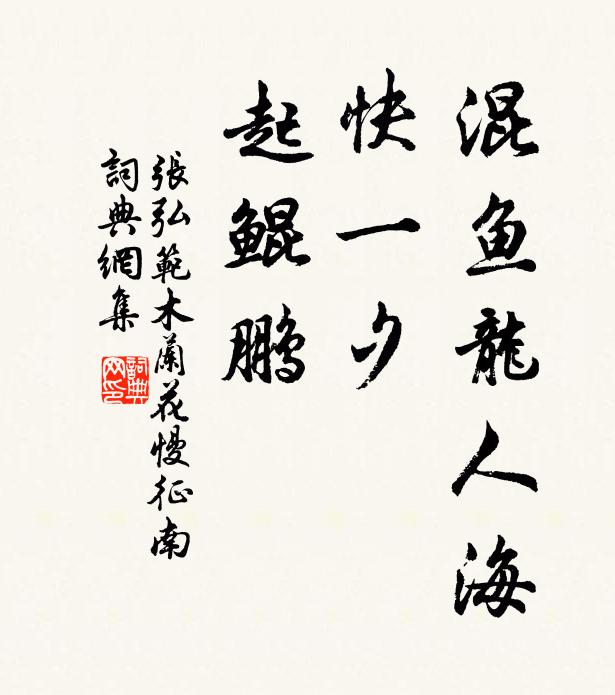 混鱼龍人海
快一夕
起鲲鹏
張弘範木蘭花慢征南
詞典網集
詞典
网印